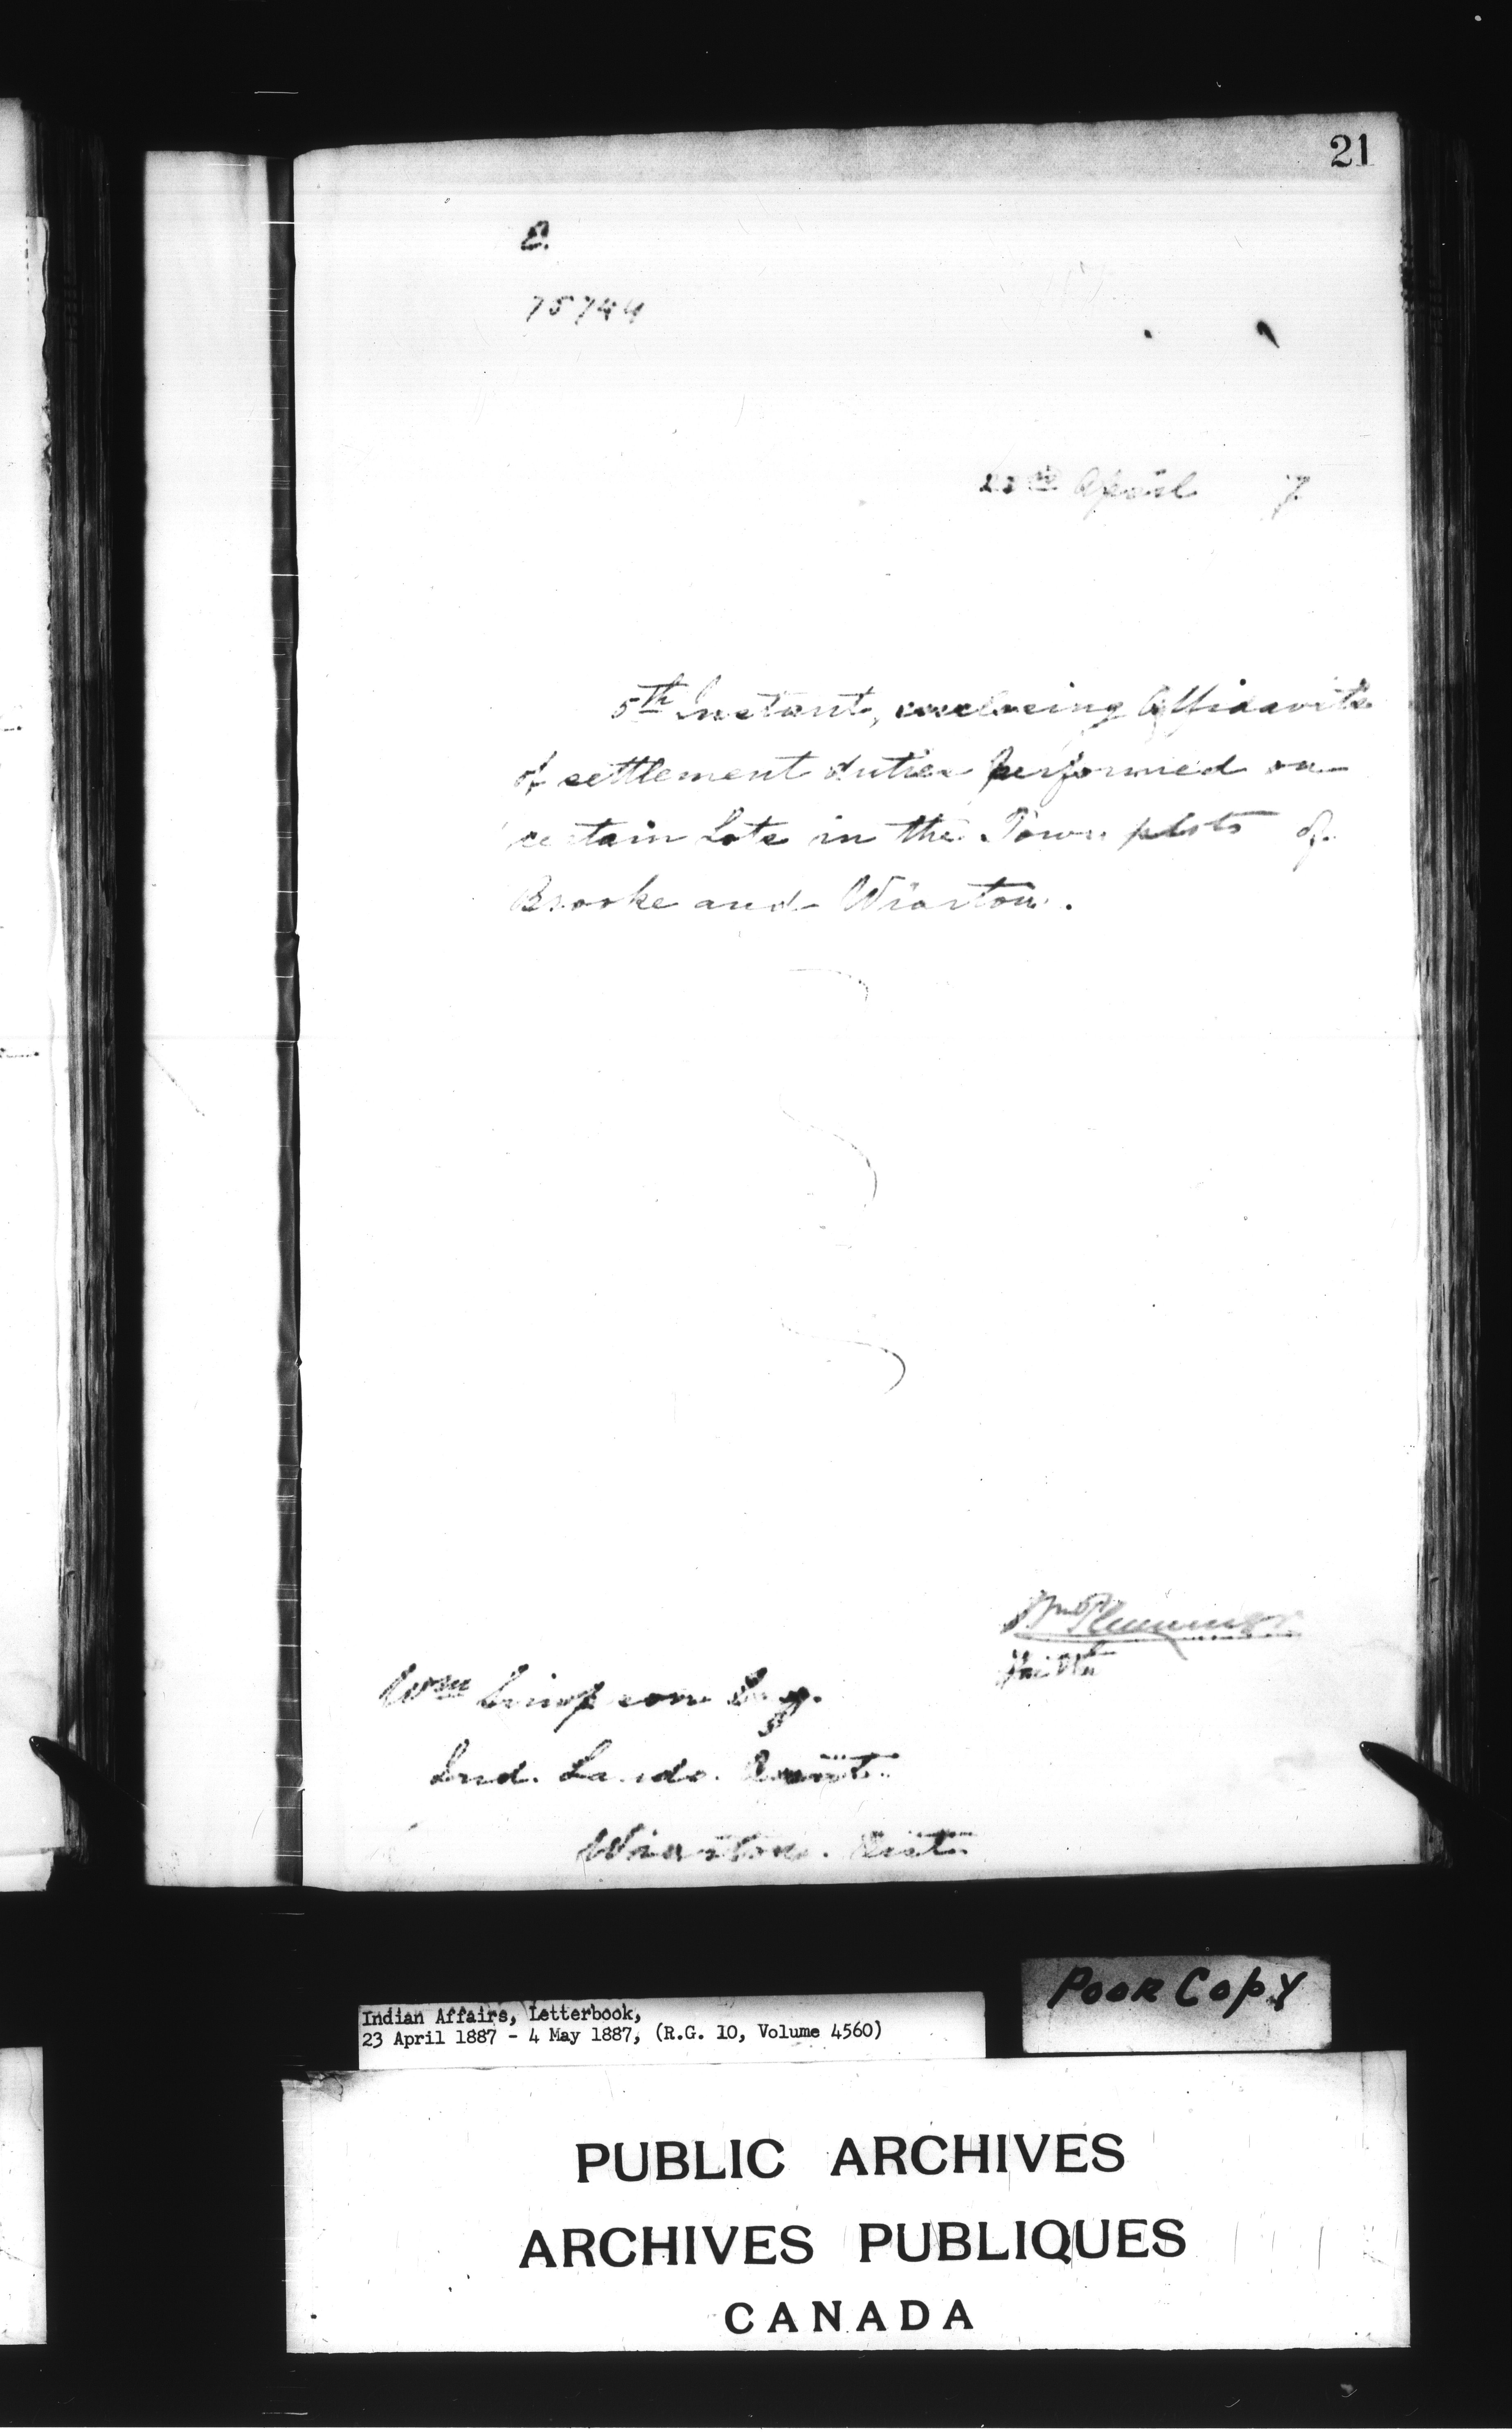 21
75744
April 7
5th Instant, enclosing Affidavits
of settlement duties performed on
certain Lots in the Town plots of
Brooke and Wiarton.
Wm Plummer
Wm Simpson Esq.
Ind. Lands Agent
Wiarton. Ont.
Indian Affairs, Letterbook,
23 April 1887 - 4 May 1887, (R.G. 10, Volume 4560)
POOR COPY
PUBLIC ARCHIVES
ARCHIVES PUBLIQUES
CANADA